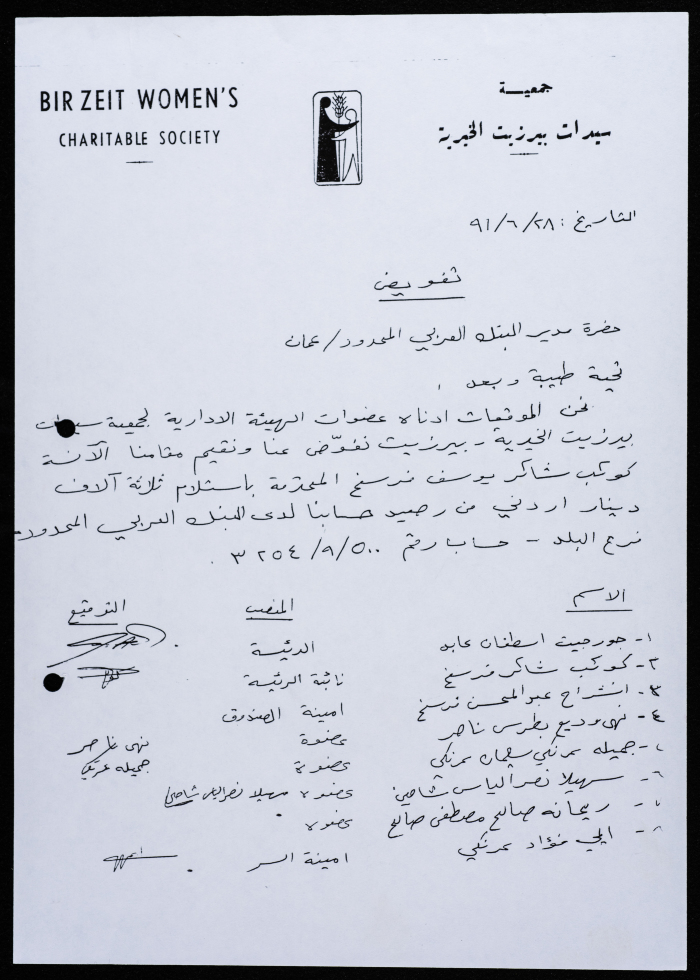 BIR ZEIT WOMEN'S
CHARITABLE SOCIETY
جمعيـة
سيدات بيرزيت الخيرية
التاريخ : ٩١/٦/٢٨
تفويض
حضرة مدير البنك العربي المحدود/عمان
تحية طيبة وبعد ،
نحن الموقعات ادناه عضوات الهيئة الادارية لجمعية سيدات
بيرزيت الخيرية - بيرزيت نفوّض عنا ونقيم مقامنا الآنسة
كوكب شاكر يوسف فرسخ المحترمة باستلام ثلاثة آلاف
دينار اردني من رصيد حسابنا لدى البنك العربي المحدود
فرع البلد - حساب رقم ٥٠٠/٩/٣٢٥٤ .
الاسم المنصب التوقيع
١- جورجيت اسطفان عابد الرئيسة
٢- كوكب شاكر فرسخ نائبة الرئيسة
٣- انشراح عبد المحسن فرسخ امينة الصندوق
٤- نهى وديع بطرس ناصر عضوة نهى ناصر
جميله سليمان عضوة جميله
٦- سهيلا نصر الياس شاهين عضوه سهيلا نصر الياس شاهين
٧- ريحانه صالح مصطفى صالح عضوه
٨- ايلي فؤاد امينة السر